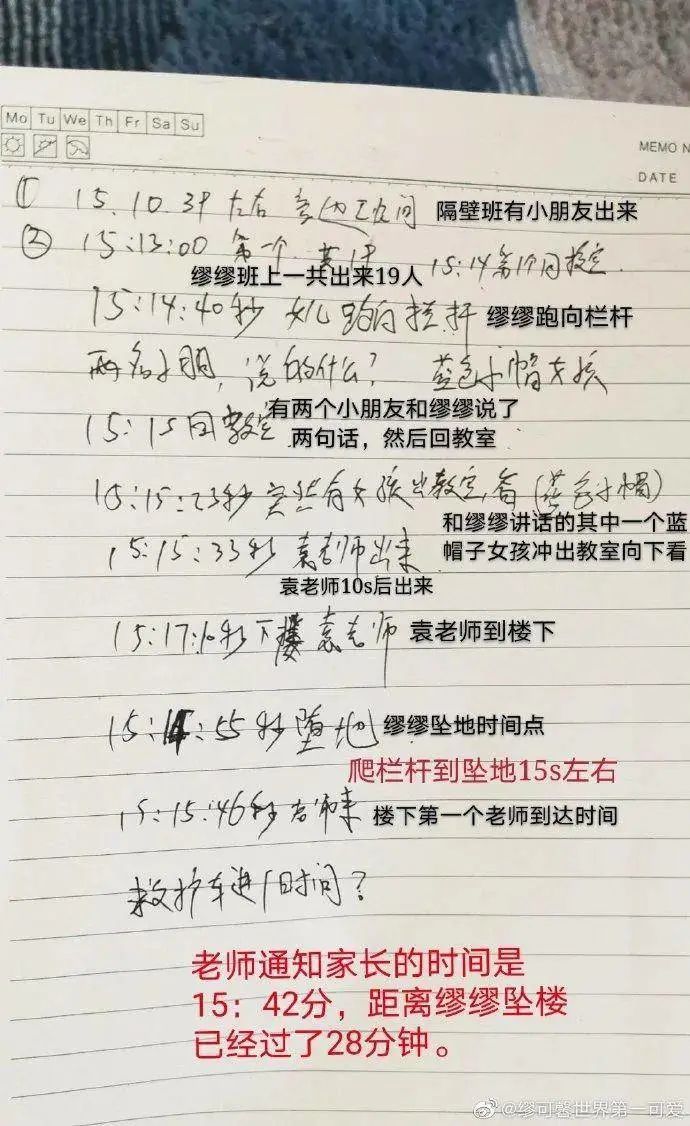 Mo Tu We Th Fr Sa Su
MEMO N
DATE
① 15.10.39 左右 旁边 间 隔壁班有小朋友出来
② 15:13:00 第一个 15:14 第19个
缪缪班上一共出来19人
15:14:40秒 女儿跑向栏杆 缪缪跑向栏杆
两名小朋, 说的什么? 蓝色小帽女孩
15:15 回教室 有两个小朋友和缪缪说了
两句话，然后回教室
15:15:23秒 有女孩出教室看 (蓝色小帽)
和缪缪讲话的其中一个蓝
15:15:33秒 袁老师出来 帽子女孩冲出教室向下看
袁老师10s后出来
15:17:10秒下楼 袁老师 袁老师到楼下
15:14:55秒堕地 缪缪坠地时间点
爬栏杆到坠地15s左右
15:15:46秒 老师来 楼下第一个老师到达时间
救护车进 时间?
老师通知家长的时间是
15：42分，距离缪缪坠楼
已经过了28分钟。
@缪可馨世界第一可爱